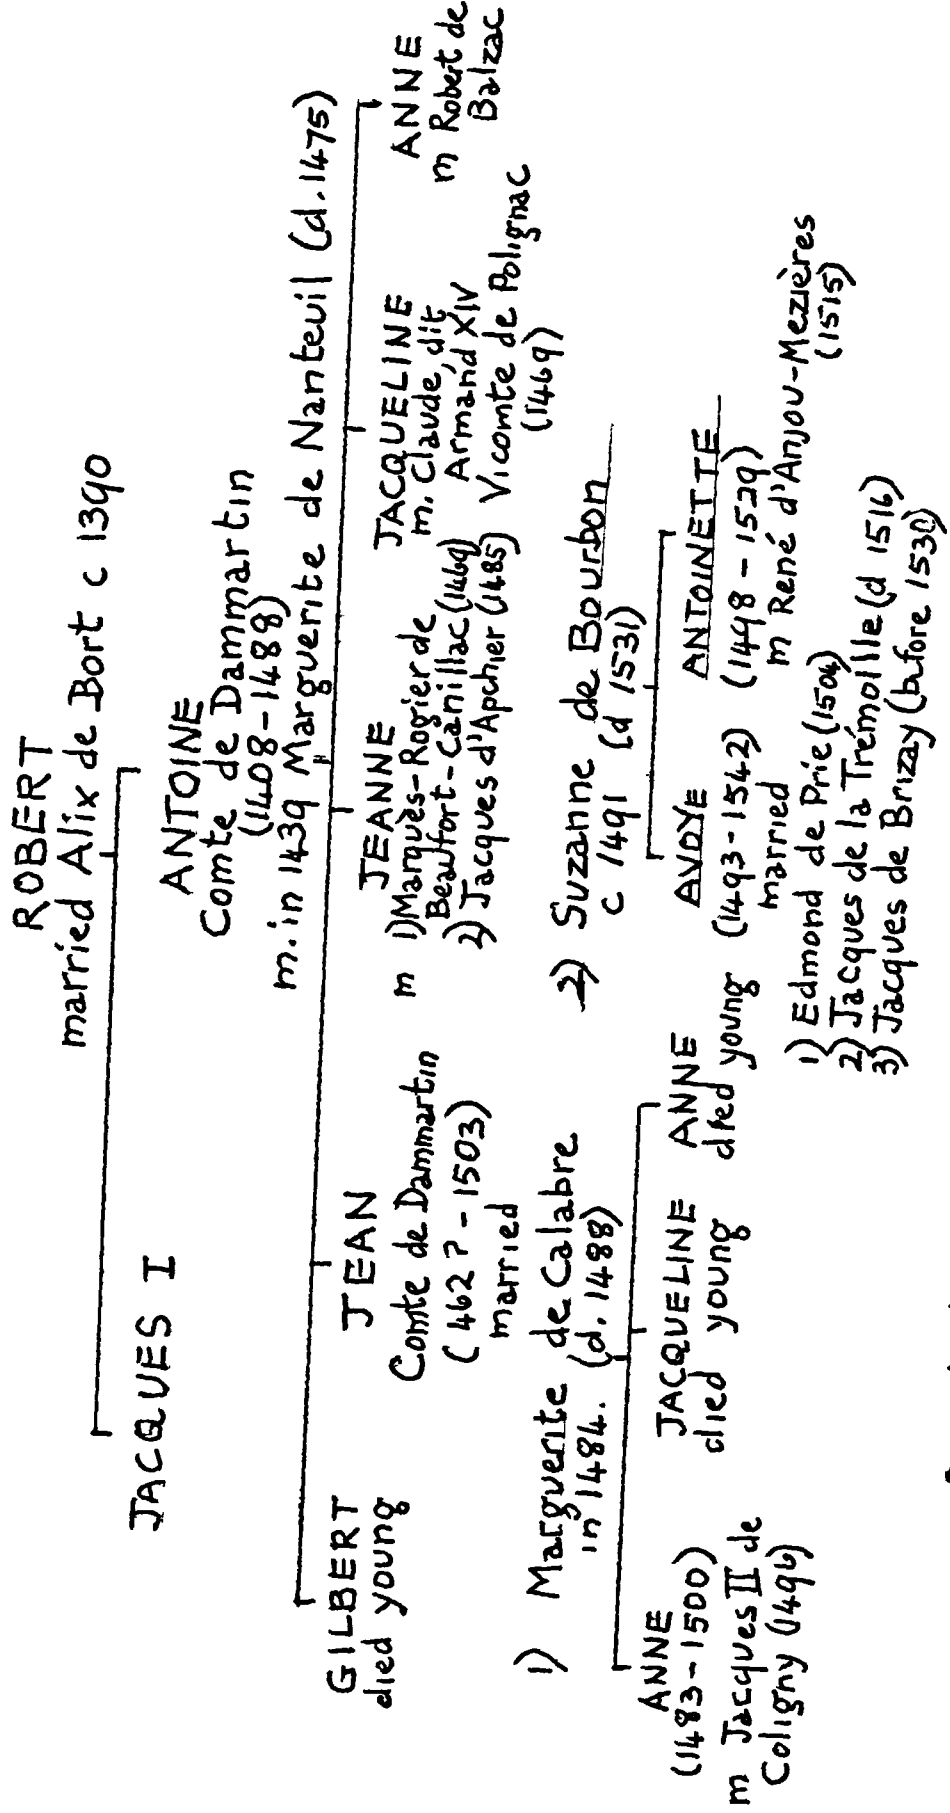 ROBERT
married Alix de Bort c 1390
JACQUES I
ANTOINE
Comte de Dammartin
(1408-1488)
m. in 1439 Marguerite de Nanteuil (d. 1475)
GILBERT
died young
JEAN
Comte de Dammartin
(462? - 1503)
married
JEANNE
m 1) Marquès-Rogier de
Beaufort-Canillac (1469)
2) Jacques d'Apchier (1485)
JACQUELINE
m. Claude, dit
Armand XIV
Vicomte de Polignac
(1469)
ANNE
m Robert de
Balzac
1) Marguerite de Calabre
in 1484. (d. 1488)
2) Suzanne de Bourbon
c 1491 (d 1531)
ANNE
(1483-1500)
m Jacques II de
Coligny (1496)
JACQUELINE
died young
ANNE
died young
AVOYE
(1493-1542)
married
1) Edmond de Prie (1504)
2) Jacques de la Trémoille (d 1516)
3) Jacques de Brizay (before 1530)
ANTOINETTE
(1498-1529)
m René d'Anjou-Mezières
(1515)